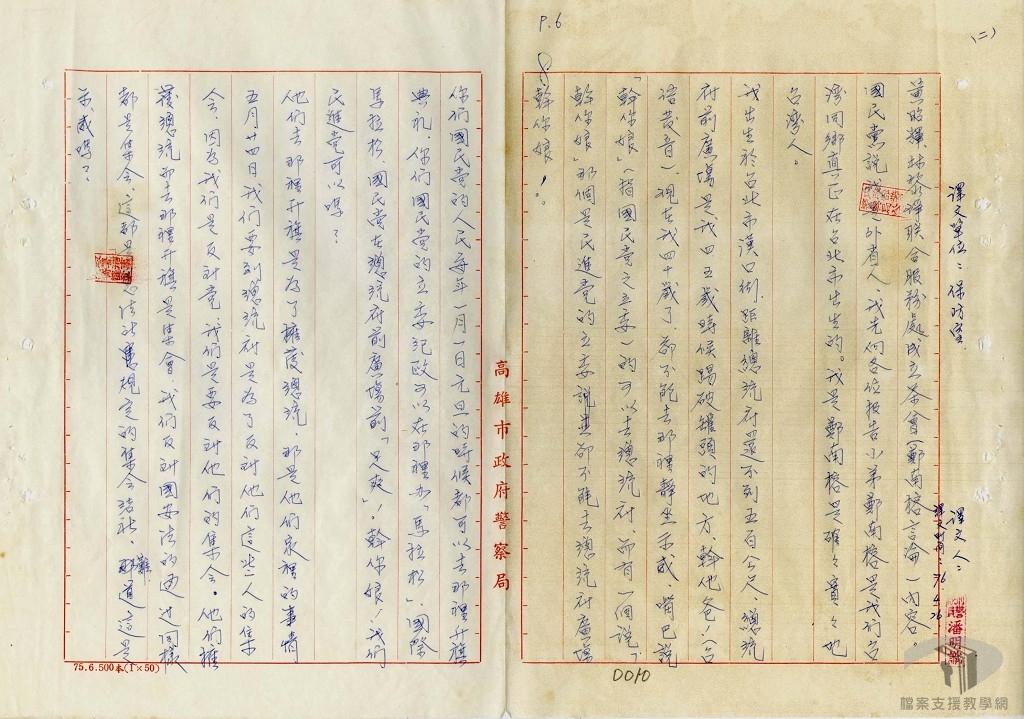 P.6
(二)
譯文單位：保防室
譯文人：
譯文時間：76.4.26.
黃昭輝、林黎琤聯合服務處成立茶會(鄭南榕言論)內容。
國民黨說我們外省人、我先向各位報告小弟鄭南榕是我們台
灣同鄉真正在台北市出生的。我是鄭南榕是確々實々地
台灣人。
我出生於台北市漢口街.距離總統府還不到五百公尺、總統
府前廣場是我四五歲時候踢破罐頭的地方、幹他爸!(台
語發音)、現在我四十歲了、卻不能去那裡靜坐示威 嘴巴說
「幹你娘」(指國民黨之立委)的可以去總統府、而有一個說「
幹你娘」那個是民進黨的立委說出卻不能去總統府廣場
8.幹你娘!。
你們國民黨的人民每年一月一日元旦的時候都可以去那裡升旗
典礼、你們國民黨的立委記政可以在那裡办「馬拉松」、國際
馬拉松、國民黨在總統府前廣場前「見爽」!幹你娘!我們
民進党可以嗎?
他們去那裡升旗是為了擁護總統、那是他們家裡的事情
五月廿四日我们要到總統府是為了反对他們這些人的集
会、因為我们是反对党、我们是要反对他们的集会。他們擁
護總統而去那裡升旗是集會、我们反对國安法的通过同樣
都是集会、這都是憲法所規定的集会結社、難道這是
示威嗎?
高雄市政府警察局
75.6.500本(1×50)
0010
檔案支援教學網